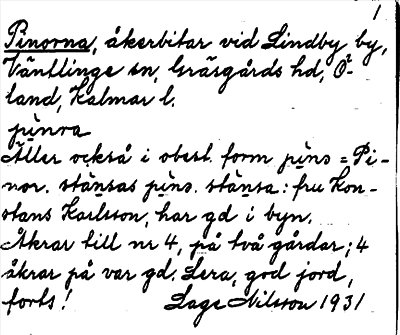 1
Pinorna, åkerbitar vid Lindby by,
Ventlinge sn, Gräsgårds hd, Ö-
land, Kalmar l.
pìnra
Äller också i obest. form pìns = Pi-
nor. stänsas pìns. stänsa: fru Kon-
stans Karlsson, har gd i byn.
Åkrar till nr 4, på två gårdar; 4
åkrar på var gd. Lera, god jord,
forts! Lage Nilsson 1931